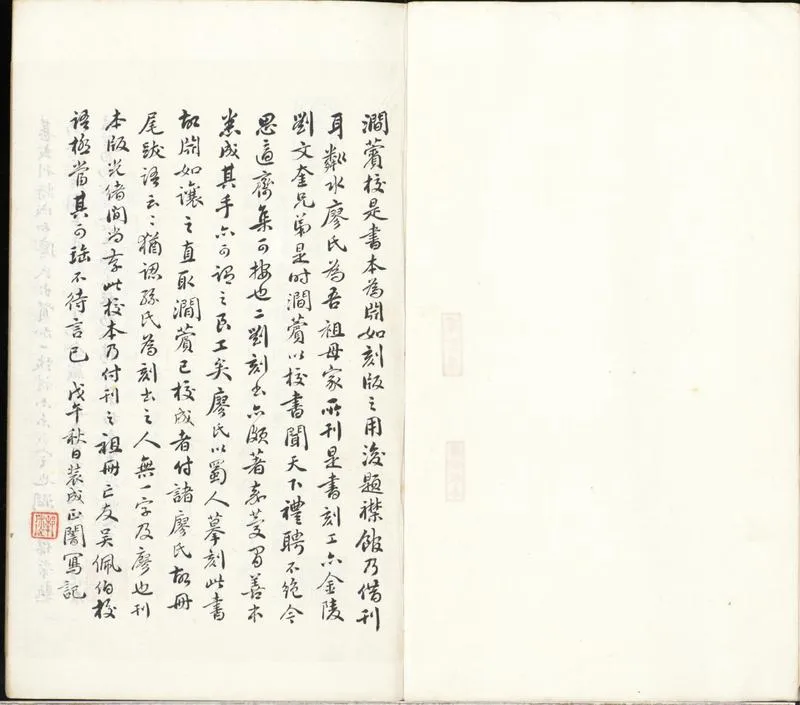 澗薲校是書本為閎如刻版之用後題襟館乃借刊
耳鄰水廖氏為吾祖母家所刊是書刻工亦金陵
劉文奎兄弟是時澗薲以校書聞天下禮聘不絕今
思適齋集可按也二劉刻書亦頗著嘉慶間善本
悉成其手亦可謂之良工矣廖氏以蜀人摹刻此書
故閎如讓之直取澗薲已校成者付諸廖氏故冊
尾跋語云云猶認孫氏為刻書之人無一字及廖也刊
本版光緒間尚存此校本乃付刊之祖冊亡友吳佩伯校
語極當其可珤不待言已 戊午秋日裝成正闇寫記